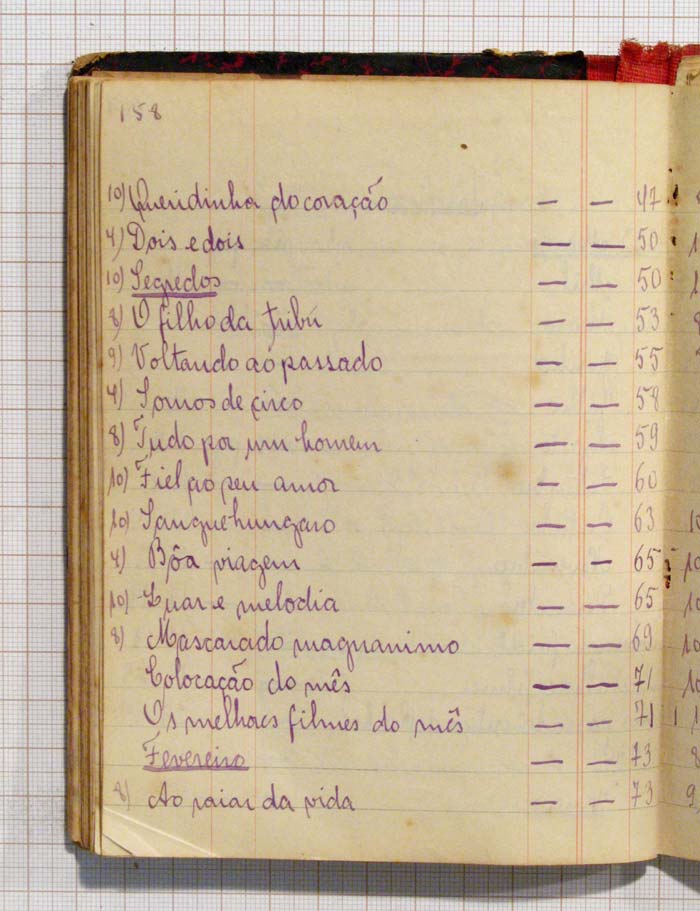 158
10) Queridinha do coração — — 47
4) Dois e dois — — 50
10) Segredos — — 50
8) O filho da tribú — — 53
9) Voltando ao passado — — 55
4) Somos de circo — — 58
8) Tudo por um homem — — 59
10) Fiel ao seu amor — — 60
10) Sangue hungaro — — 63
4) Bôa viagem — — 65
10) Luar e melodia — — 65
8) Mascarado magnanimo — — 69
Colocação do mês — — 71
Os melhores filmes do mês — — 71
Fevereiro — — 73
8) Ao raiar da vida — — 73